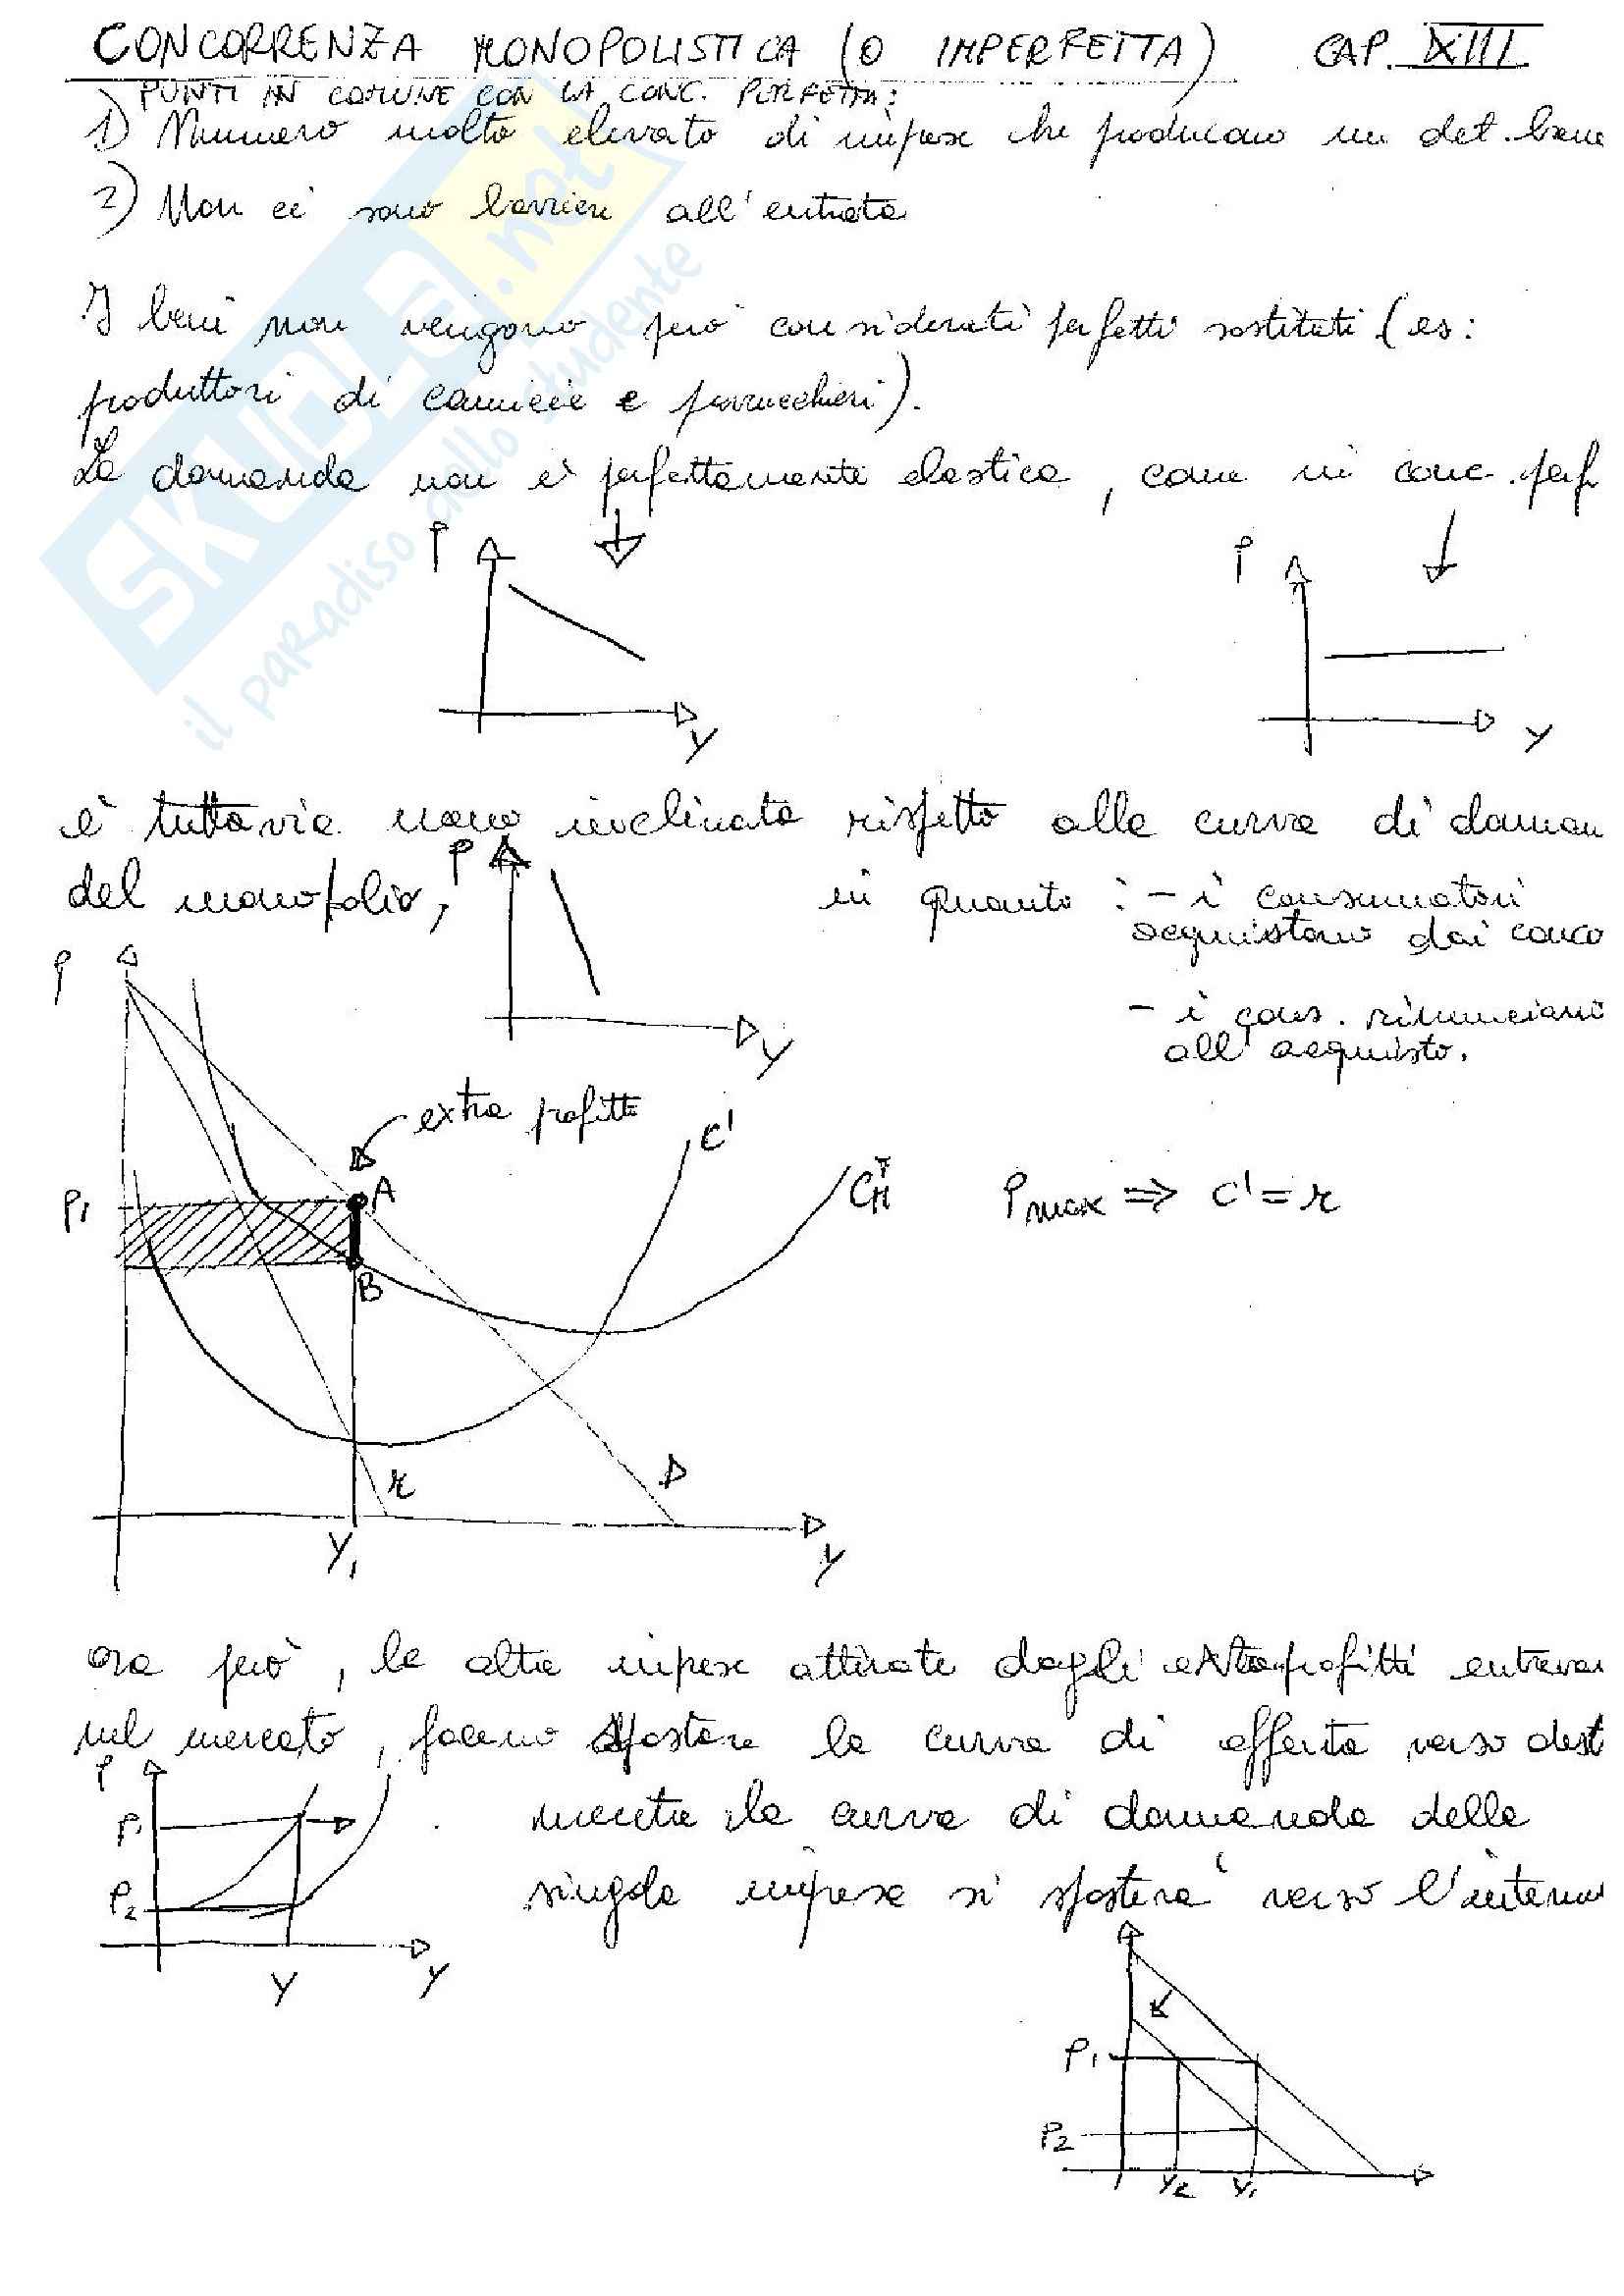 CONCORRENZA MONOPOLISTICA (O IMPERFETTA) CAP. XIII
PUNTI IN COMUNE CON LA CONC. PERFETTA:
1) Numero molto elevato di imprese che producono un det. bene
2) Non ci sono barriere all'entrata
I beni non vengono però considerati perfetti sostituti (es:
produttori di camicie e parrucchieri).
La domanda non è perfettamente elastica, come in conc. perf
P
P
y
y
è tuttavia meno inclinata rispetto alla curva di doman
del monopolio,
P
in quanto: - i consumatori
acquistano dai conco
- i cons. rinunciano
all'acquisto.
y
P
extra profitti
C'
P1
A
B
Pmax => C' = r
r
D
Y1
y
ora però, le altre imprese attirate dagli extraprofitti entrera
nel mercato, facendo spostare la curva di offerta verso dest
mentre la curva di domanda della
singola impresa si sposterà verso l'interno
P
P1
P2
Y
y
P1
P2
Y2 Y1
SKUOLA.net
il paradiso dello studente